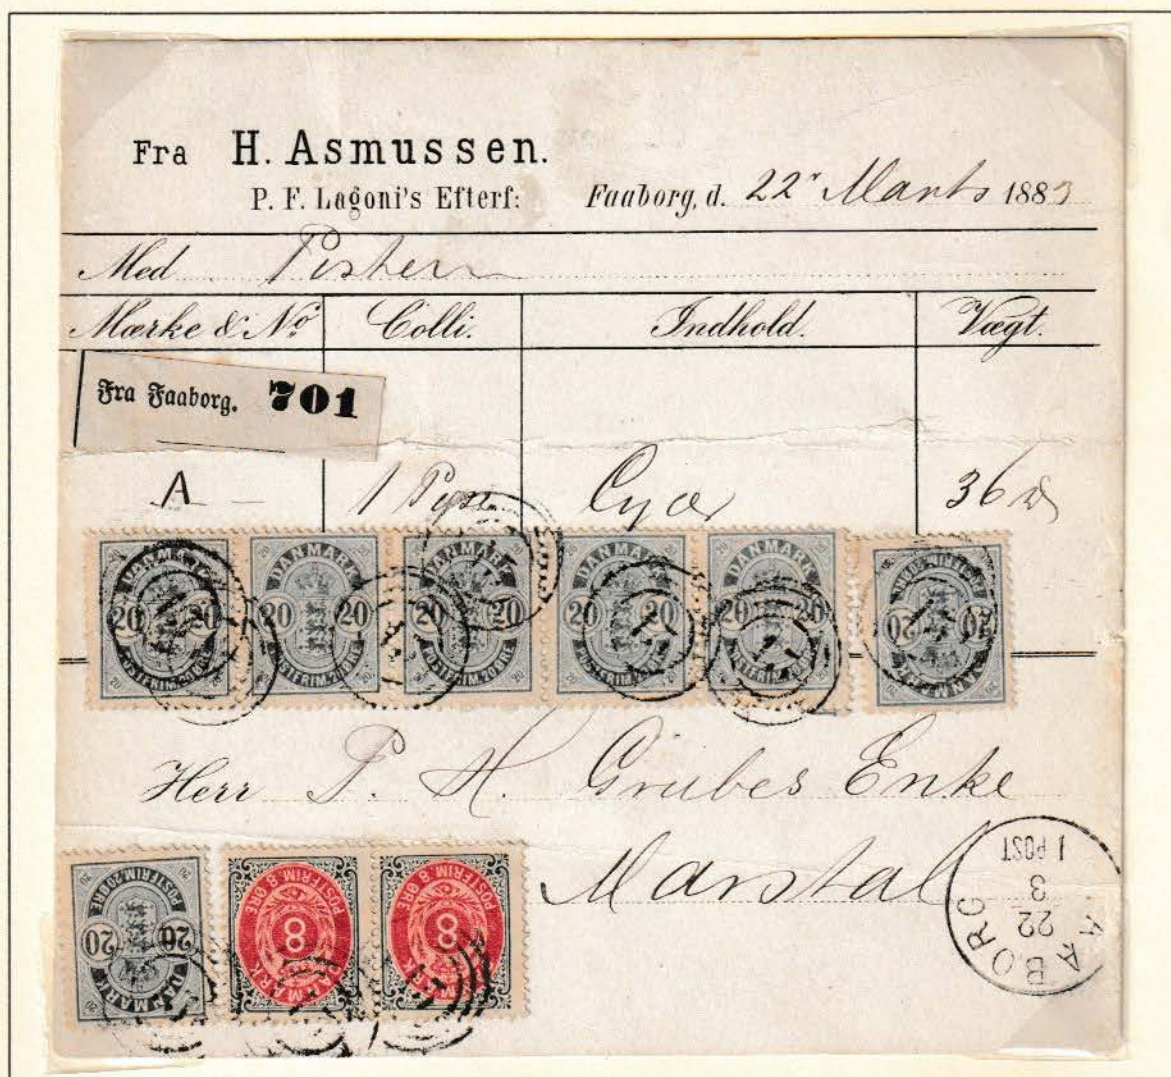 Fra H. Asmussen.
P. F. Lagoni's Efterf: Faaborg, d. 22 Marts 1883
Med Posten
Mærke & No Colli. Indhold. Vægt.
Fra Faaborg. 701
A 1 36
DANMARK 20 20 POSTFRIM. 20 ØRE
DANMARK 20 20 POSTFRIM. 20 ØRE
DANMARK 20 20 POSTFRIM. 20 ØRE
DANMARK 20 20 POSTFRIM. 20 ØRE
DANMARK 20 20 POSTFRIM. 20 ØRE
DANMARK 20 20 POSTFRIM. 20 ØRE
Herr P. H. Grubes Enke
Marstal
DANMARK 20 20 POSTFRIM. 20 ØRE
DANMARK 8 POSTFRIM. 8 ØRE
DANMARK 8 POSTFRIM. 8 ØRE
AABORG
22
3
1 POST